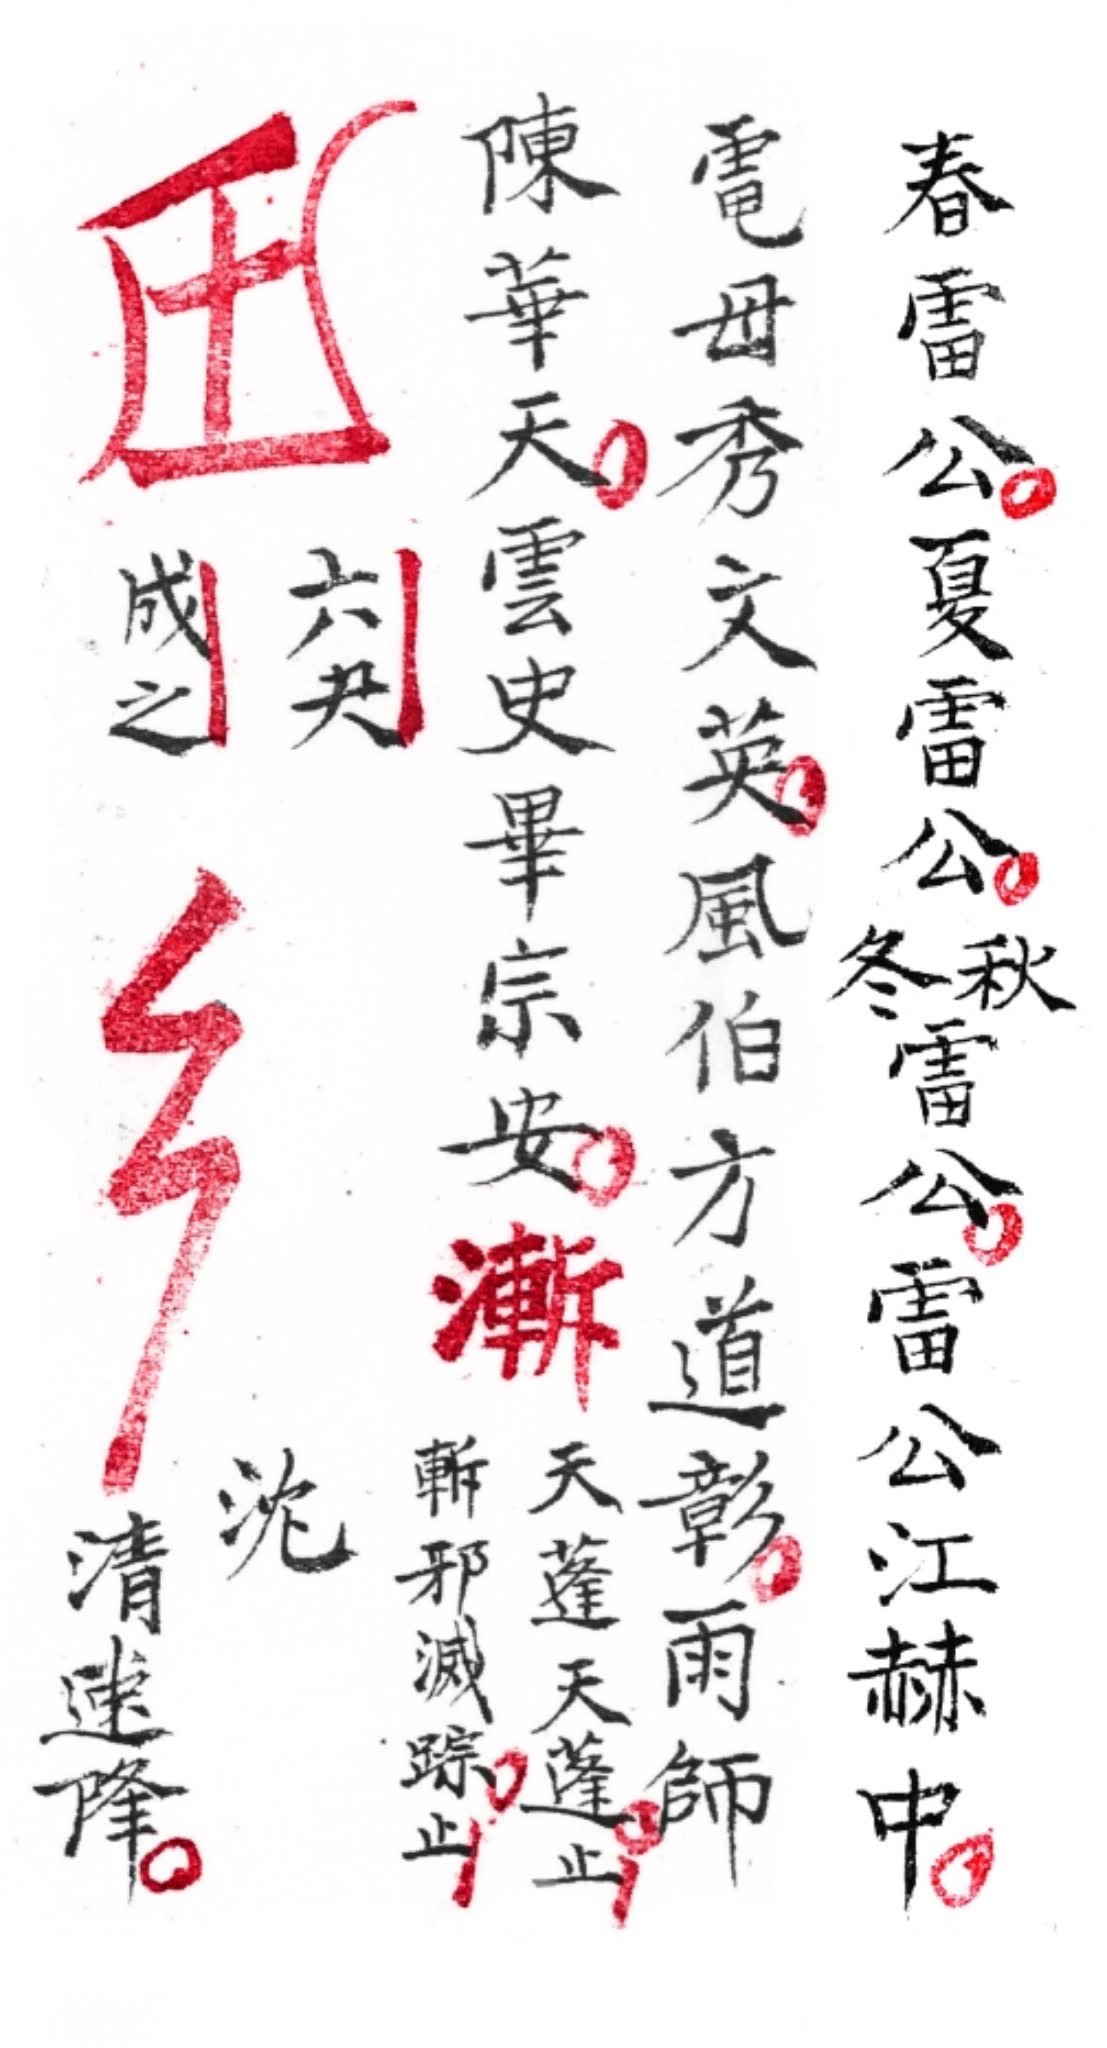 春雷公夏雷公秋冬雷公雷公江赫中
電母秀文英風伯方道彰雨師
陳華天雲史畢宗安漸
天蓬天蓬止
斬邪滅踪止
六尹
成之
沈
清連隆